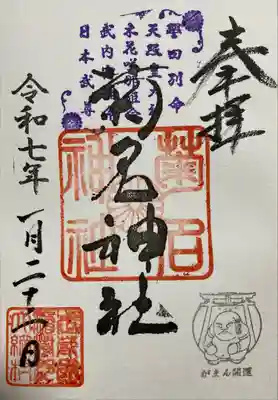 奉拝
誉田別命
天照皇大神
木花咲耶姫命
武内宿禰命
日本武尊
菊名神社
菊名神社
令和七年一月二十一日
がまん開運